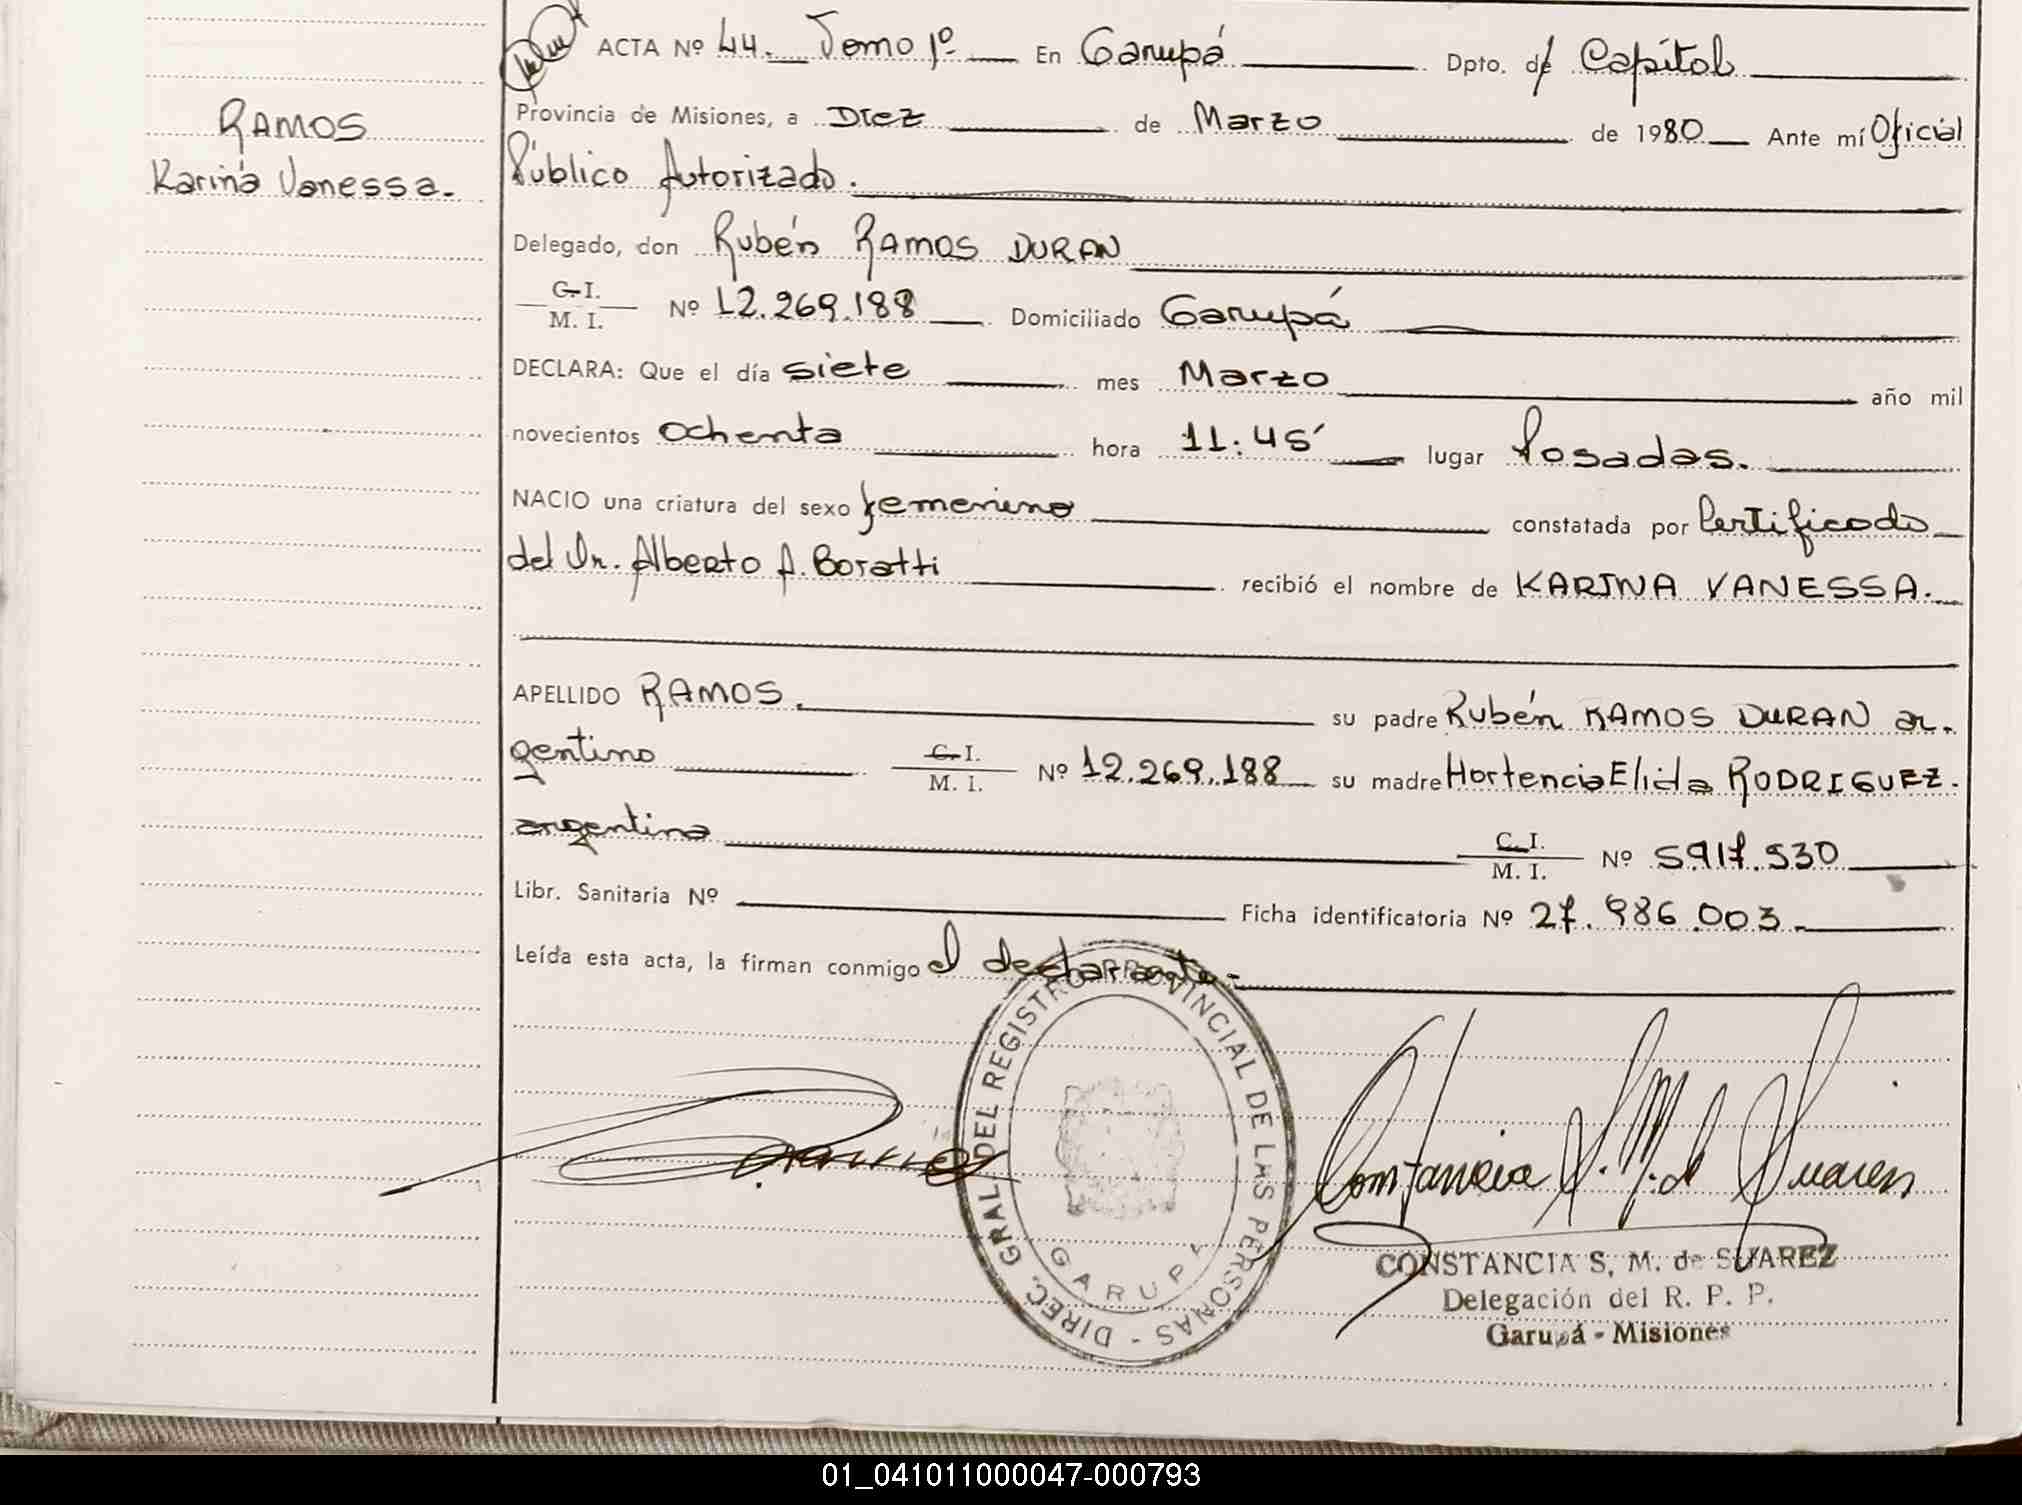 ACTA Nº 44. Tomo 1º En Garupá Dpto. de Capital
RAMOS
Karina Vanessa.
Provincia de Misiones, a Diez de Marzo de 1980 Ante mí Oficial
Público Autorizado.
Delegado, don Rubén RAMOS DURAN
C. I.
M. I. Nº 12.269.188 Domiciliado Garupá
DECLARA: Que el día siete mes Marzo año mil
novecientos ochenta hora 11:45' lugar Posadas.
NACIO una criatura del sexo femenino constatada por Certificado
del Dr. Alberto A. Boratti recibió el nombre de KARINA VANESSA.
APELLIDO RAMOS. su padre Rubén RAMOS DURAN ar-
gentino C. I. M. I. Nº 12.269.188 su madre Hortencia Elida RODRIGUEZ.
argentina C. I. M. I. Nº 5917.530
Libr. Sanitaria Nº Ficha identificatoria Nº 27.986.003.
Leída esta acta, la firman conmigo el declarante.-
DIREC. GRAL. DEL REGISTRO PROVINCIAL DE LAS PERSONAS -
GARUPA
Constancia S. M. de Suarez
CONSTANCIA S. M. de SUAREZ
Delegación del R. P. P.
Garupá - Misiones
01_041011000047-000793